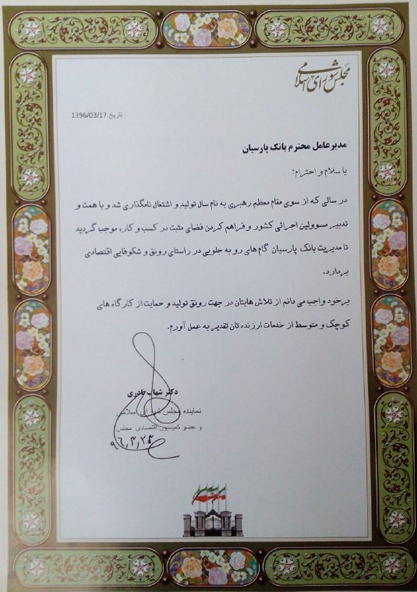 مجلس شورای اسلامی
تاریخ: 1396/03/17
مدیرعامل محترم بانک پارسیان
با سلام و احترام؛
در سالی که از سوی مقام معظم رهبری به نام سال تولید و اشتغال نامگذاری شد و با همت و
تدبیر مسوولین اجرائی کشور و فراهم کردن فضای مثبت در کسب و کار، موجب گردید
تا مدیریت بانک پارسیان گام های رو به جلویی در راستای رونق و شکوفایی اقتصادی
بردارد.
برخود واجب می دانم از تلاش هایتان در جهت رونق تولید و حمایت از کارگاه های
کوچک و متوسط از خدمات ارزنده تان تقدیر به عمل آورم.
دکتر شهاب نادری
نماینده مجلس شورای اسلامی
و عضو کمیسیون اقتصادی مجلس